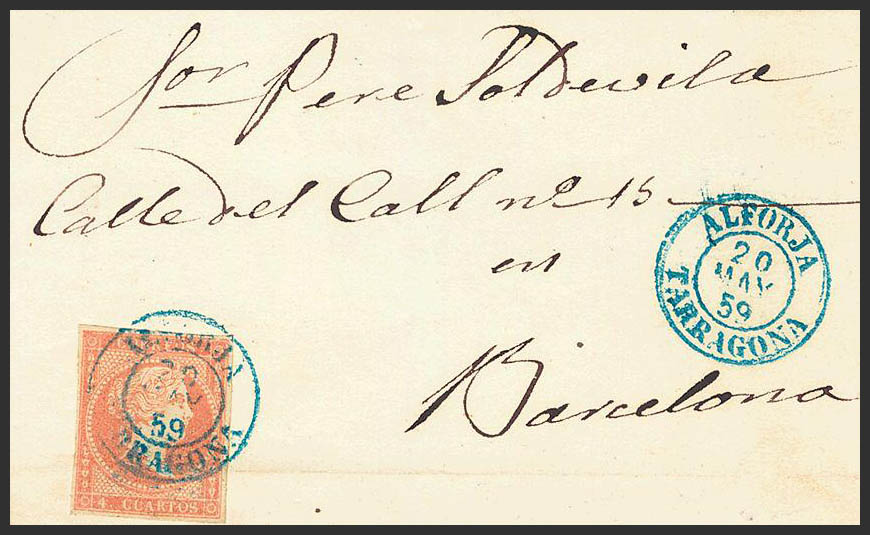 Sor Pere Soldevila
Calle del Call nº 15
en
Barcelona
ALFORJA
20
MAY
59
TARRAGONA
ALFORJA
20
59
TARRAGONA
4 CUARTOS